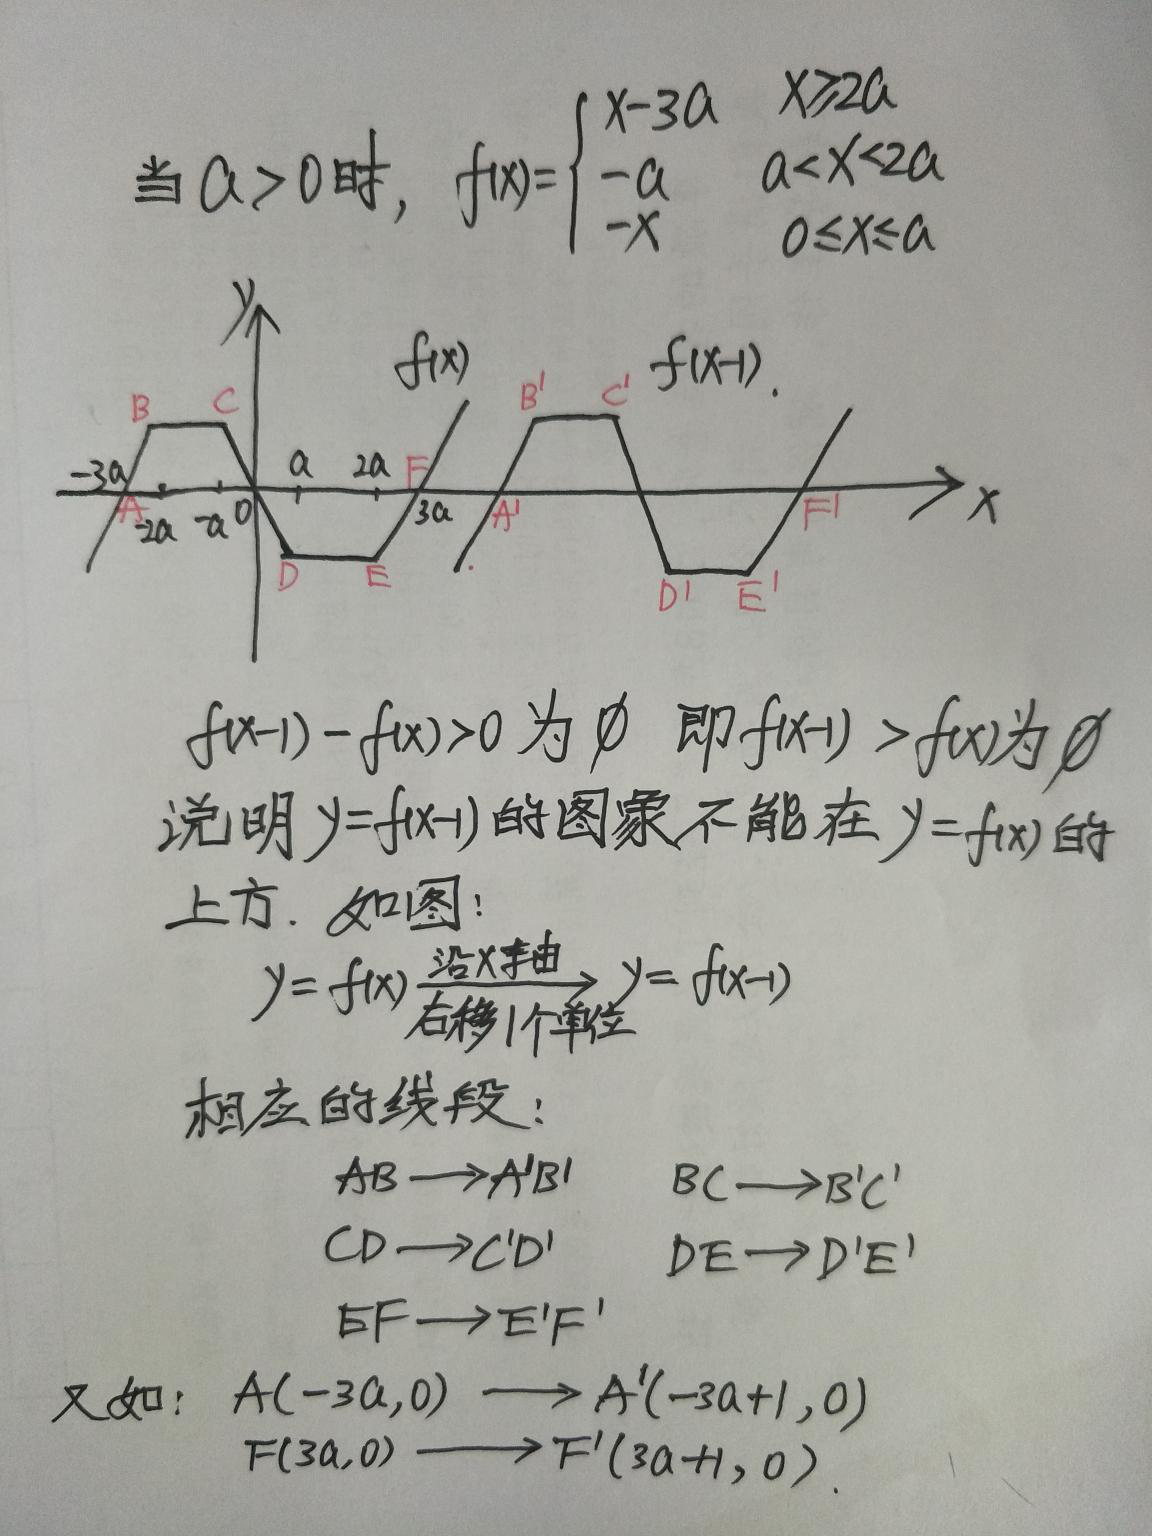 当a>0时, f(x)= { x-3a x≥2a
-a a<x<2a
-x 0≤x≤a
y
f(x) f(x-1).
B C B' C'
-3a a 2a F
A -2a -a 0 3a A' F' x
D E D' E'
f(x-1)-f(x)>0为∅ 即f(x-1)>f(x)为∅
说明y=f(x-1)的图象不能在y=f(x)的
上方. 如图:
y=f(x) 沿x轴 右移1个单位 → y=f(x-1)
相应的线段:
AB→A'B' BC→B'C'
CD→C'D' DE→D'E'
EF→E'F'
又如: A(-3a,0) → A'(-3a+1,0)
F(3a,0) → F'(3a+1,0).